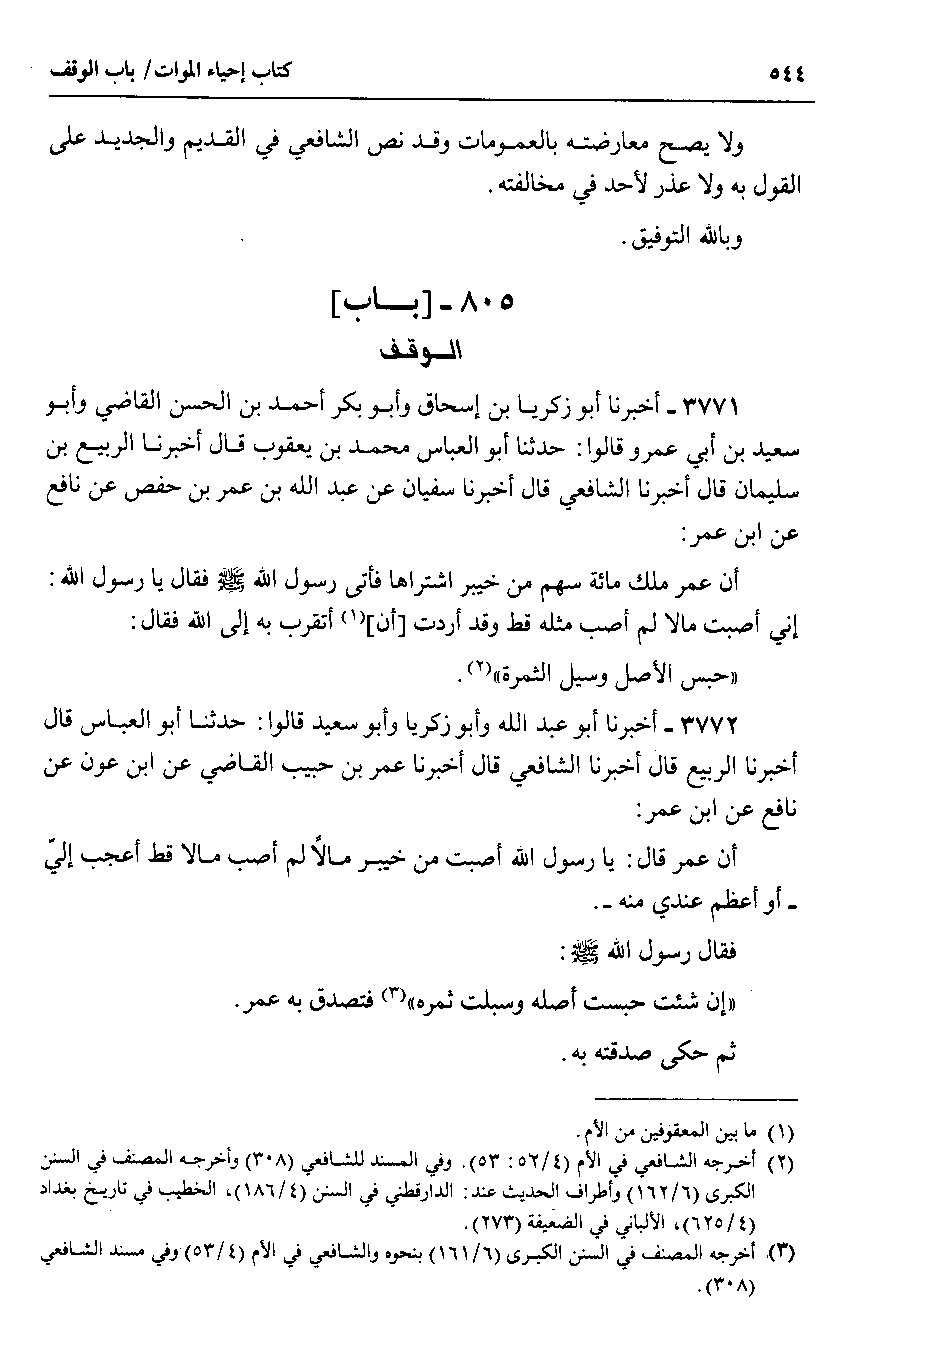 ٥٤٤
كتاب إحياء الموات / باب الوقف
ولا يصح معارضته بالعمومات وقد نص الشافعي في القديم والجديد على
القول به ولا عذر لأحد في مخالفته .
وبالله التوفيق .
٨٠٥ - [باب]
الوقف
٣٧٧١ - أخبرنا أبو زكريا بن إسحاق وأبو بكر أحمد بن الحسن القاضي وأبو
سعيد بن أبي عمرو قالوا : حدثنا أبو العباس محمد بن يعقوب قال أخبرنا الربيع بن
سليمان قال أخبرنا الشافعي قال أخبرنا سفيان عن عبد الله بن عمر بن حفص عن نافع
عن ابن عمر :
أن عمر ملك مائة سهم من خيبر اشتراها فأتى رسول الله ﷺ فقال يا رسول الله :
إني أصبت مالا لم أصب مثله قط وقد أردت [أن](١) أتقرب به إلى الله فقال :
«حبس الأصل وسبل الثمرة»(٢) .
٣٧٧٢ - أخبرنا أبو عبد الله وأبو زكريا وأبو سعيد قالوا : حدثنا أبو العباس قال
أخبرنا الربيع قال أخبرنا الشافعي قال أخبرنا عمر بن حبيب القاضي عن ابن عون عن
نافع عن ابن عمر :
أن عمر قال : يا رسول الله أصبت من خيبر مالاً لم أصب مالا قط أعجب إليّ
- أو أعظم عندي منه - .
فقال رسول الله ﷺ :
«إن شئت حبست أصله وسبلت ثمره»(٣) فتصدق به عمر .
ثم حكى صدقته به .
(١) ما بين المعقوفين من الأم .
(٢) أخرجه الشافعي في الأم (٥٢/٤ : ٥٣) . وفي المسند للشافعي (٣٠٨) وأخرجه المصنف في السنن
الكبرى (١٦٢/٦) وأطراف الحديث عند : الدارقطني في السنن (١٨٦/٤) ، الخطيب في تاريخ بغداد
(٦٢٥/٤) ، الألباني في الضعيفة (٢٧٣) .
(٣) أخرجه المصنف في السنن الكبرى (١٦١/٦) بنحوه والشافعي في الأم (٥٣/٤) وفي مسند الشافعي
(٣٠٨) .